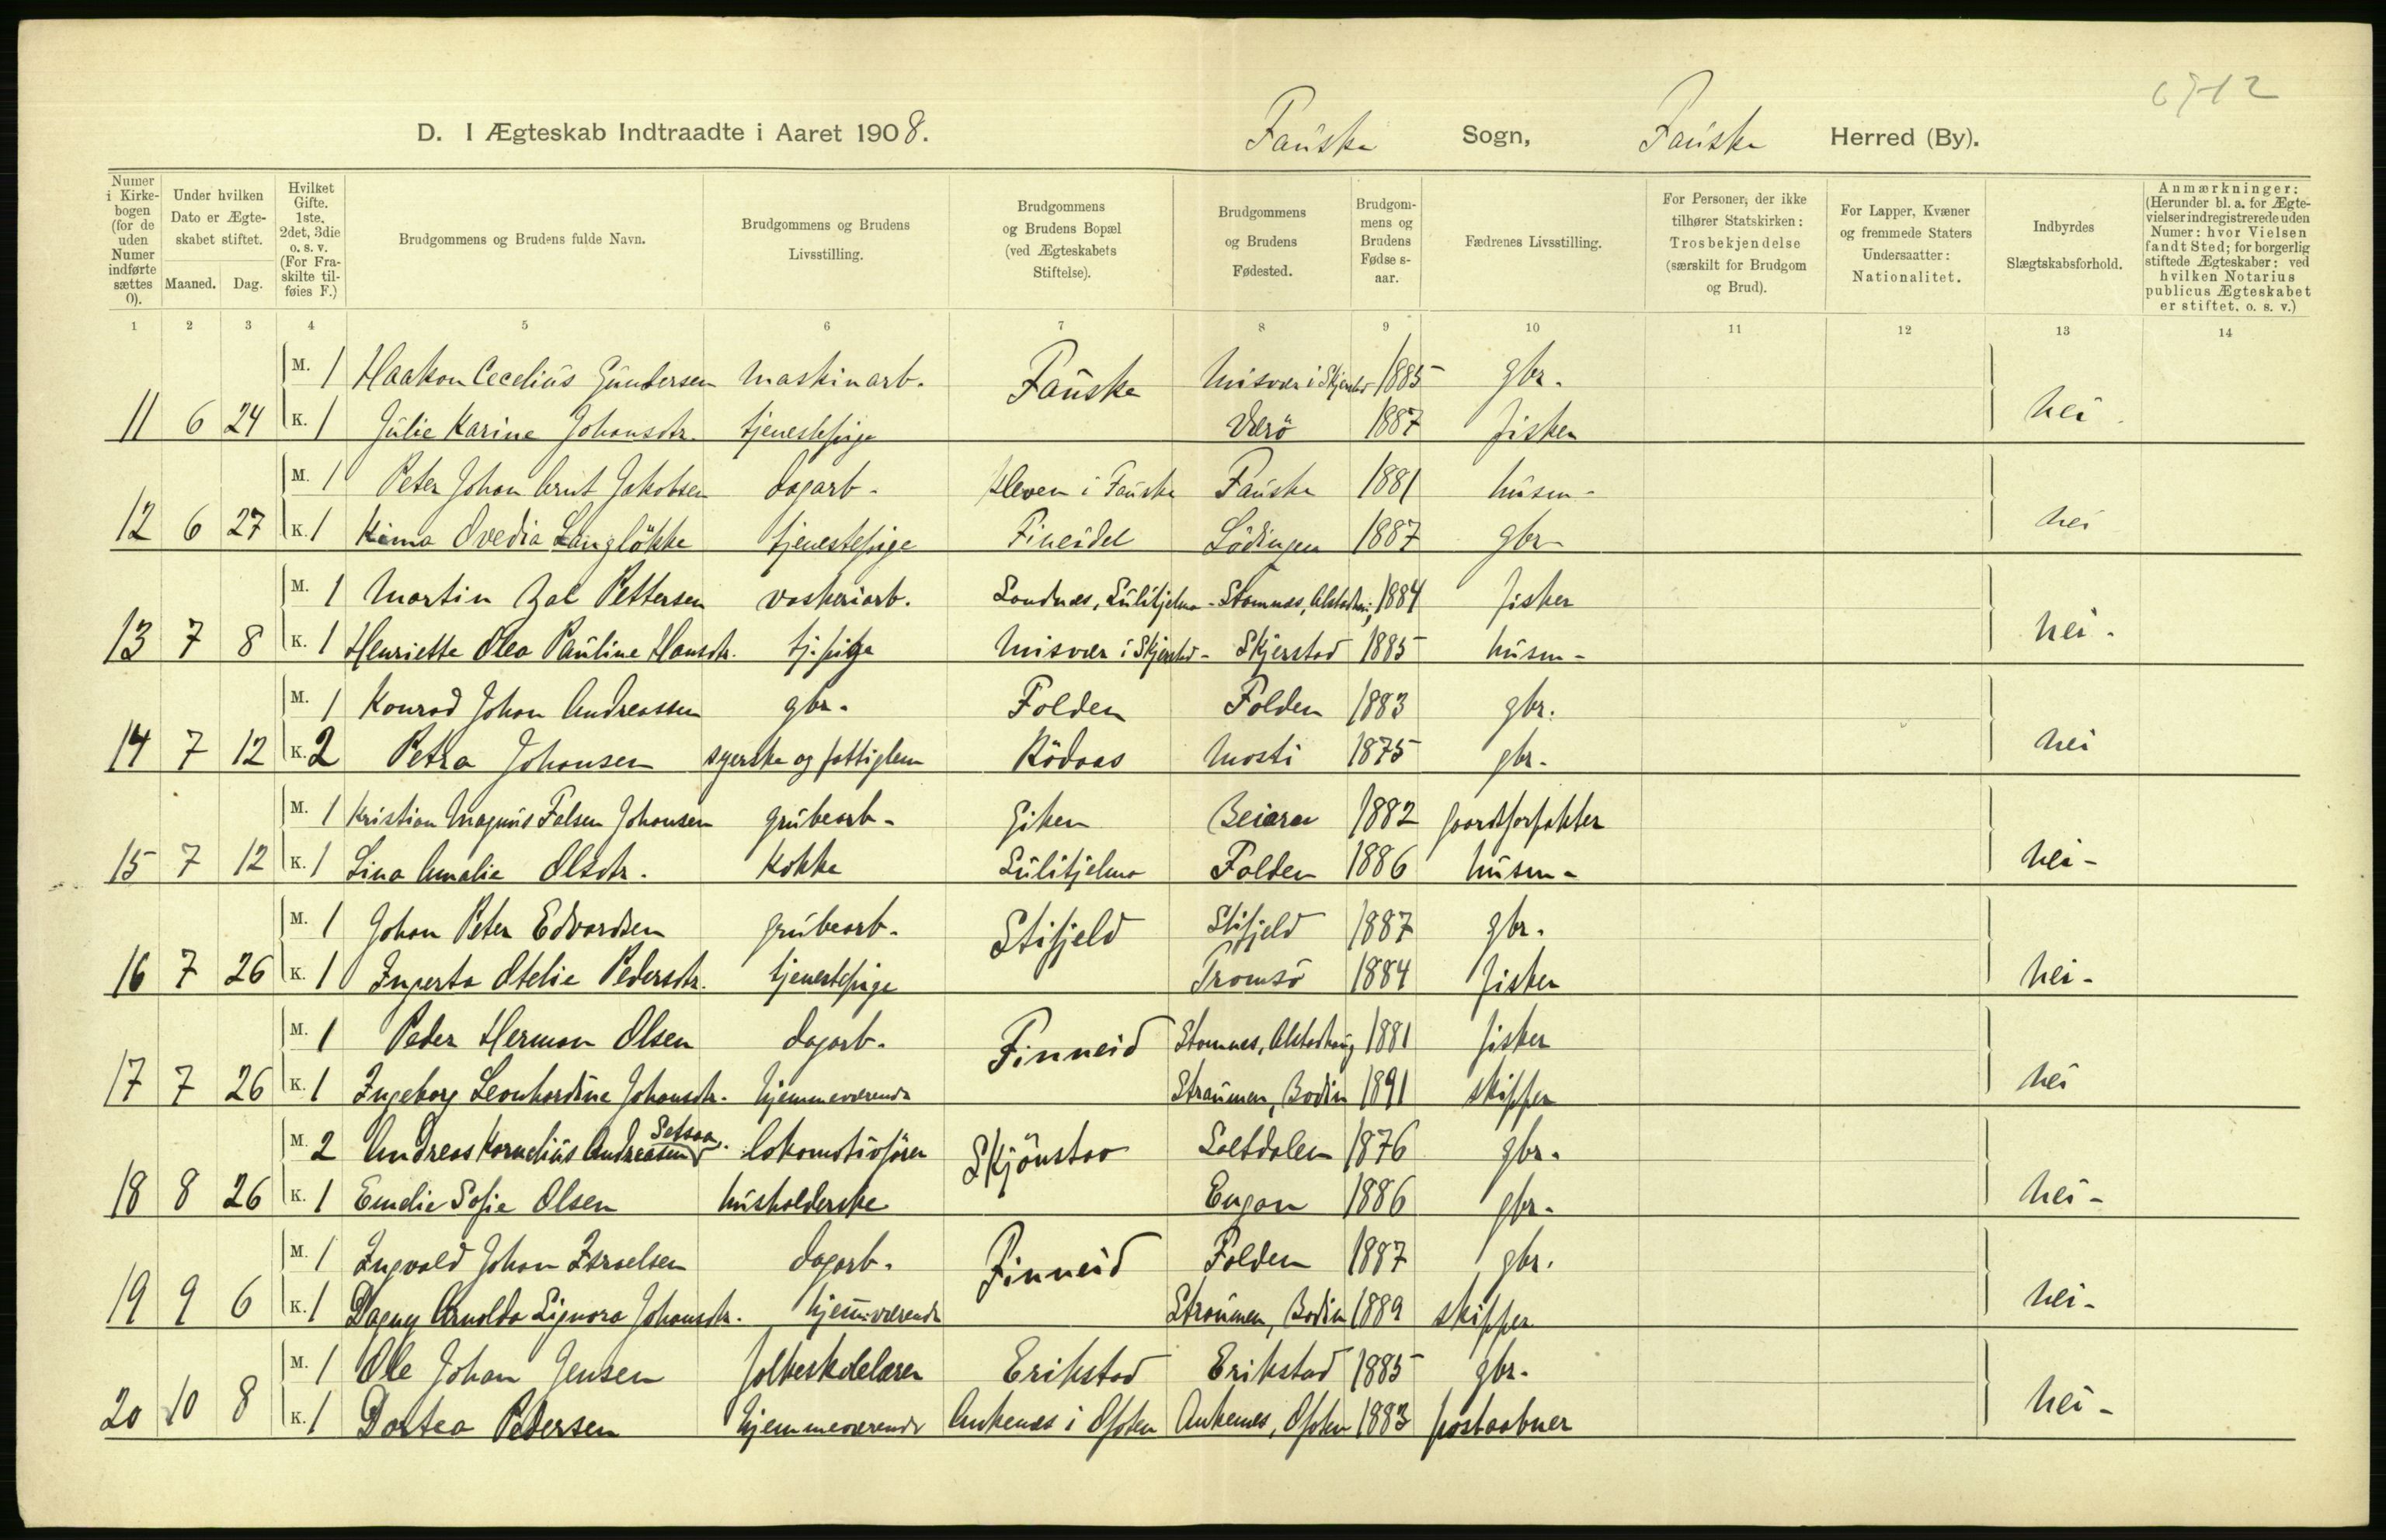 D. I Ægteskab Indtraadte i Aaret 1908. Fauske Sogn, Fauske Herred (By).
Numer i Kirkebogen (for de uden Numer indførte sættes 0).
Under hvilken Dato er Ægteskabet stiftet.
Maaned. Dag.
Hvilket Gifte. 1ste, 2det, 3die o. s. v. (For Fraskilte tilføies F.)
Brudgommens og Brudens fulde Navn.
Brudgommens og Brudens Livsstilling.
Brudgommens og Brudens Bopæl (ved Ægteskabets Stiftelse).
Brudgommens og Brudens Fødested.
Brudgommens og Brudens Fødse s-aar.
Fædrenes Livsstilling.
For Personer, der ikke tilhører Statskirken: Trosbekjendelse (særskilt for Brudgom og Brud).
For Lapper, Kvæner og fremmede Staters Undersaatter: Nationalitet.
Indbyrdes Slægtskabsforhold.
Anmærkninger: (Herunder bl. a. for Ægtevielser indregistrerede uden Numer: hvor Vielsen fandt Sted; for borgerlig stiftede Ægteskaber: ved hvilken Notarius publicus Ægteskabet er stiftet, o. s. v.)
1 2 3 4 5 6 7 8 9 10 11 12 13 14
M. 1 Haakon Cecelius Gundersen maskinarb. Fauske Misvær i Skjerstad 1885 gbr.
11 6 24 K. 1 Julie Karine Johansdtr. tjenestepige Værö 1887 fisker nei
M. 1 Peter Johan Arnt Jakobsen dagarb. Kleven i Fauske Fauske 1881 husm-
12 6 27 K. 1 Ovedia Langløkke tjenestepige Fineidet Lödingen 1887 gbr- nei
M. 1 Martin Zal Pettersen vaskeriarb. Sandnes, Sulitjelma Stamnes, Alstadhaug 1884 fisker
13 7 8 K. 1 Henriette Olea Pauline Hansdtr. tj.pige Misvær i Skjerstad Skjerstad 1885 husm- nei-
M. 1 Konrad Johan Andreassen gbr. Folden Folden 1883 gbr.
14 7 12 K. 2 Petra Johansen syerske og fattiglem Rödaas Mosti 1875 gbr. nei
M. 1 Kristian Magnus Falsen Johansen grubearb- Giken Beiaren 1882 gaardforpakter
15 7 12 K. 1 Lina Amalie Olsdtr. kokke Sulitjelma Folden 1886 husm- nei-
M. 1 Johan Peter Edvardsen grubearb- Stifjeld Stifjeld 1887 gbr.
16 7 26 K. 1 Ingerta Otelie Pedersdtr. tjenestepige Tromsö 1884 fisker nei-
M. 1 Peder Herman Olsen dagarb. Finneid Stamnes, Alstadhaug 1881 fisker
17 7 26 K. 1 Ingeborg Leonhardine Johansdtr. hjemmeværende Straumen, Bodin 1891 skipper nei
M. 2 Andreas Kornelius Andreasen Setsaa. lokomotivförer Skjönstaa Saltdalen 1876 gbr.
18 8 26 K. 1 Emelie Sofie Olsen husholderske Engan 1886 gbr. nei-
M. 1 Ingvald Johan Israelsen dagarb. Finneid Folden 1887 gbr.
19 9 6 K. 1 Dagny Arnolda Signora Johansdtr. hjemværende Straumen, Bodin 1889 skipper nei-
M. 1 Ole Johan Jensen folkeskolelærer Erikstad Erikstad 1885 gbr.
20 10 8 K. 1 Dortea Pedersen hjemmeværende Ankenes i Ofoten Ankenes, Ofoten 1883 postaabner nei-